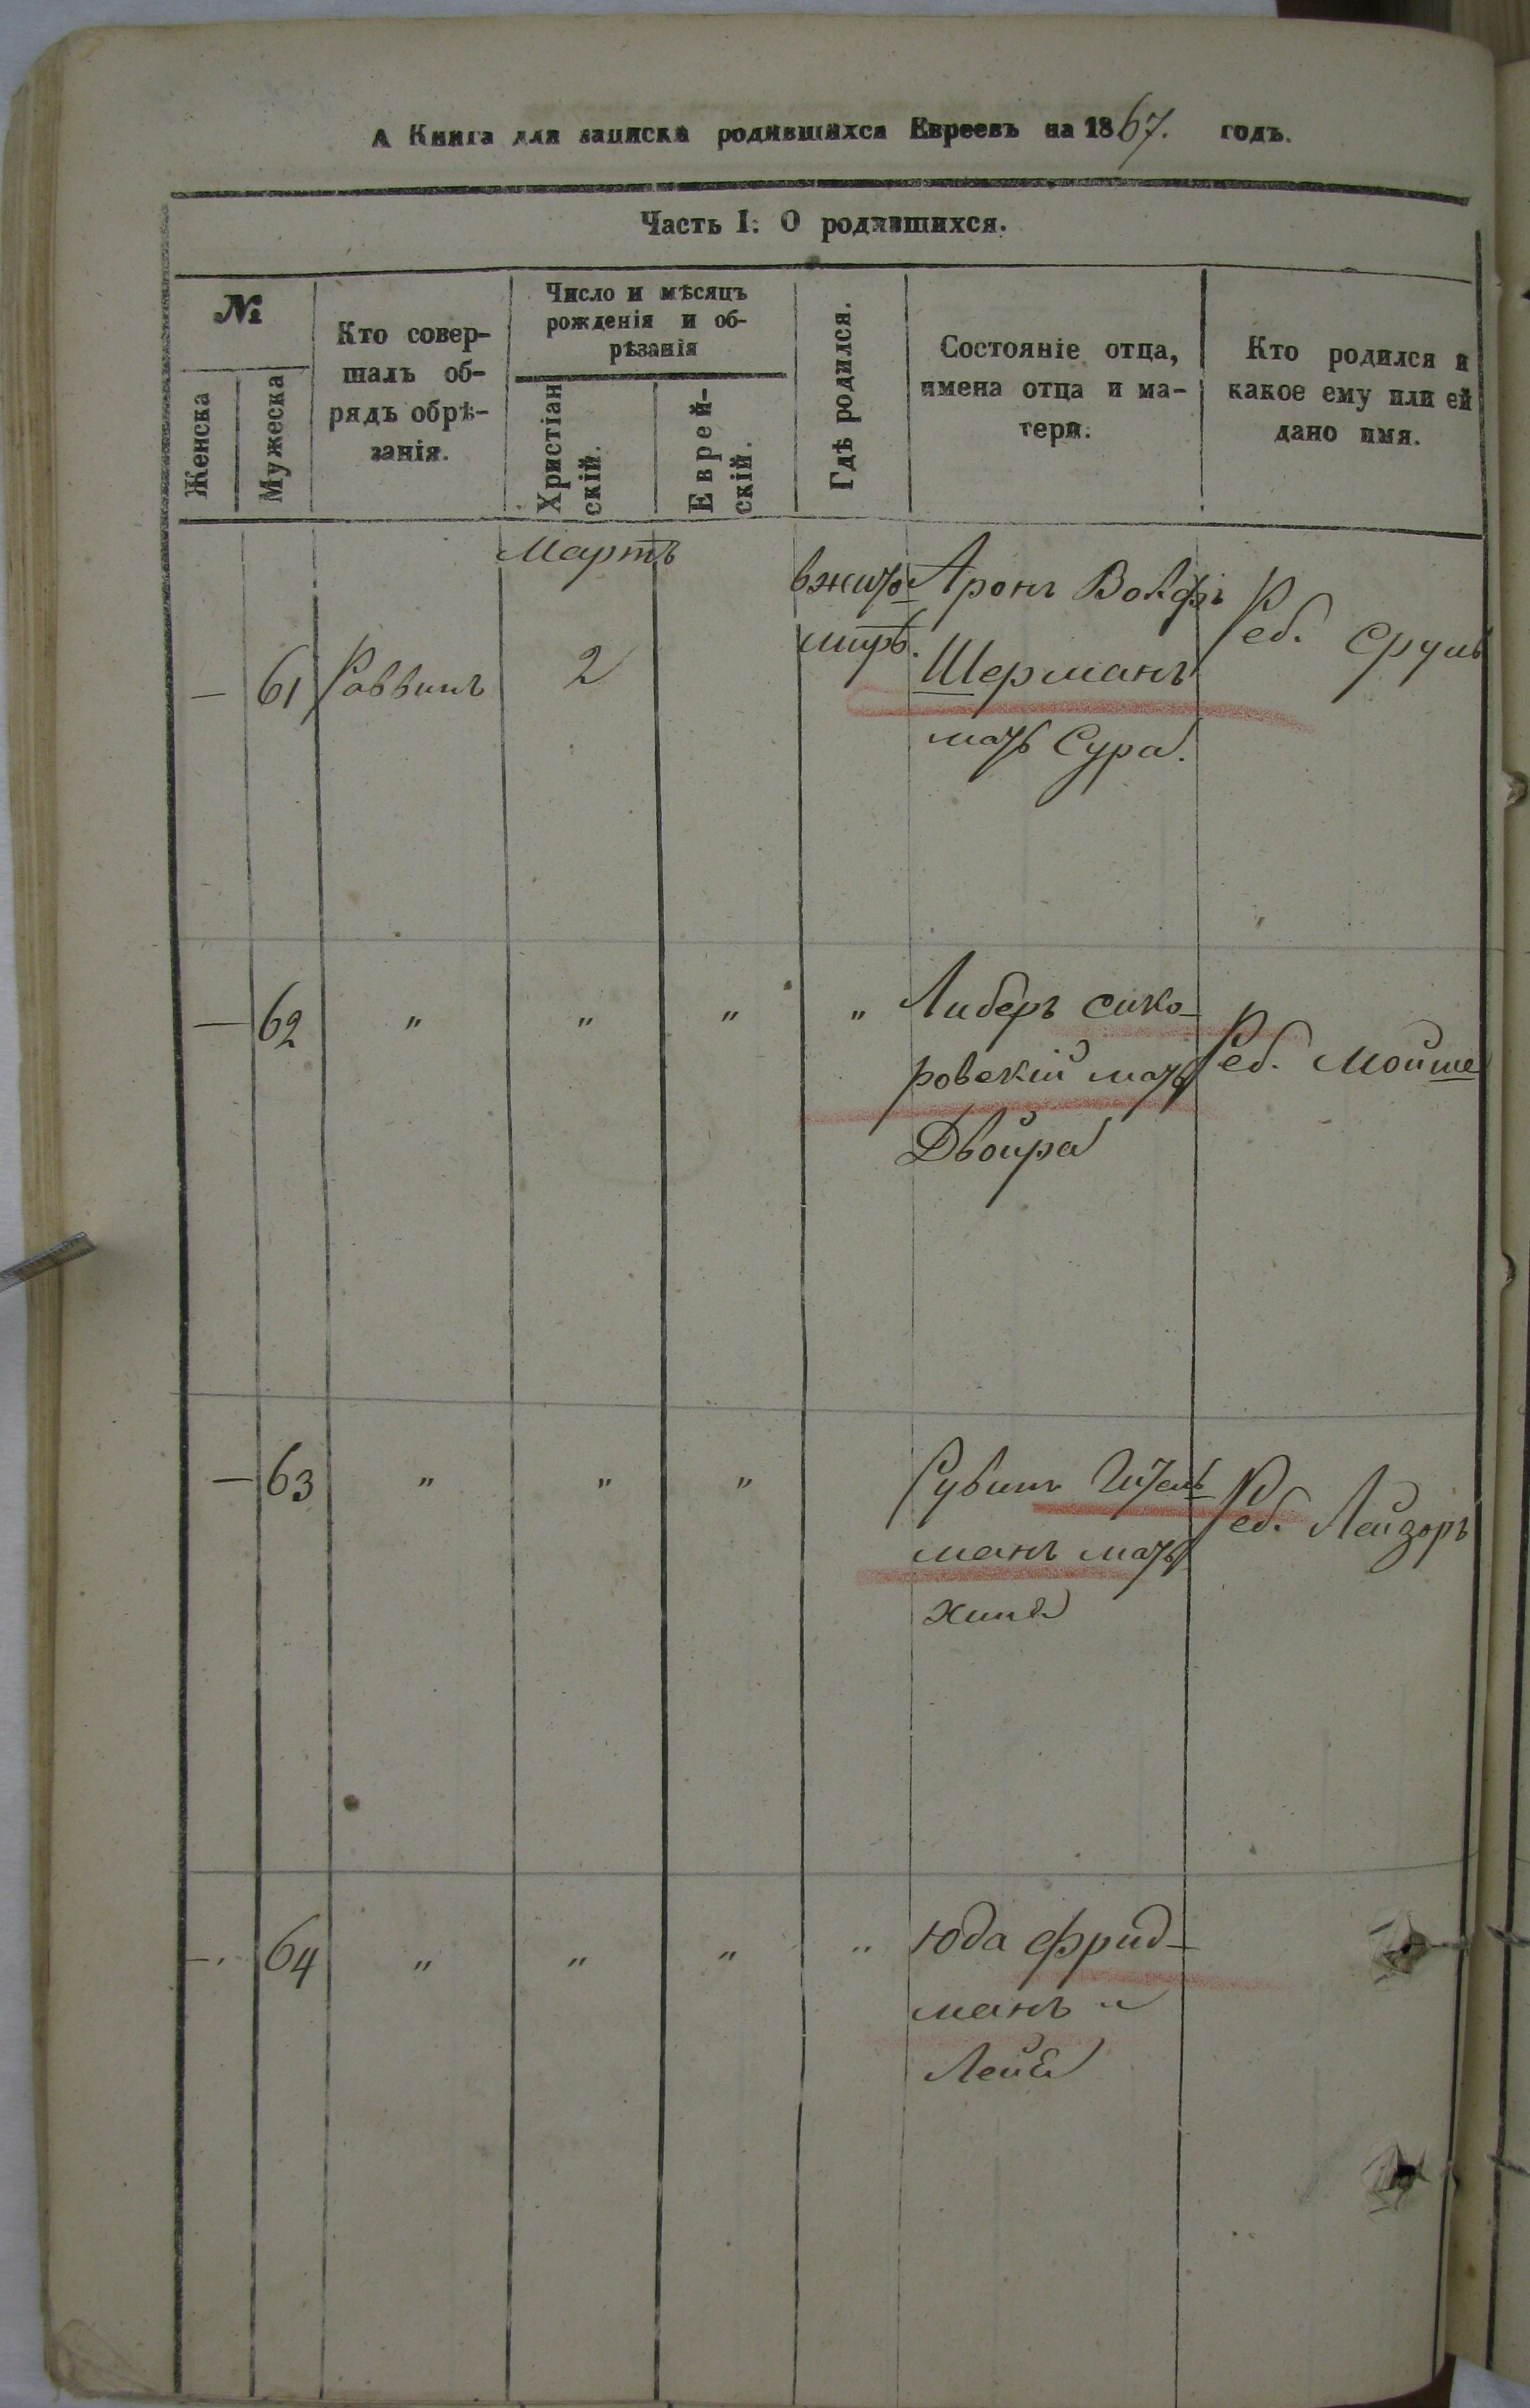 А Книга для записки родившихся Евреевъ на 1867. годъ.
Часть I: О родившихся.
№
Женска
Мужеска
Кто совер-
шалъ об-
рядъ обрѣ-
занія.
Число и мѣсяцъ
рожденія и об-
рѣзанія
Христіан
скій.
Еврей-
скій.
Гдѣ родился.
Состояніе отца,
имена отца и ма-
тери.
Кто родился и
какое ему или ей
дано имя.
Мартъ
— 61 Раввинъ 2
вжито-
мирѣ.
Аронъ Волфъ
Шерманъ
мать Сура.
Реб. Сруль
— 62 " " " "
Либеръ Сико-
ровскій мать
Двойра
Реб. Мойше
— 63 " " "
Рувинъ
манъ мать
Реб. Лейзоръ
— 64 " " " "
Юда Фрид-
манъ и
Лейя